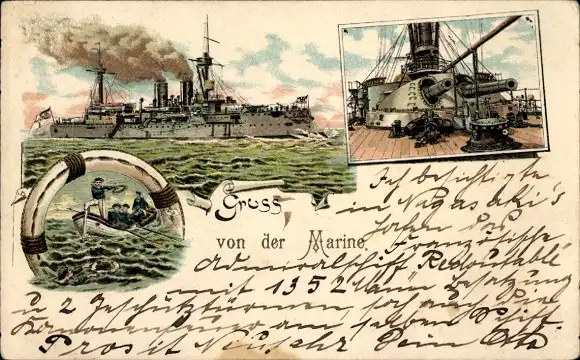 Gruss
von der Marine.
Ich besichtigte
in Nagasaki's
das
Französische
Admiralschiff Redoutable
mit 1352 Mann Besatzung
u 2 Geschütztürmen,
am selben
Prosit Neujahr Dein Otto